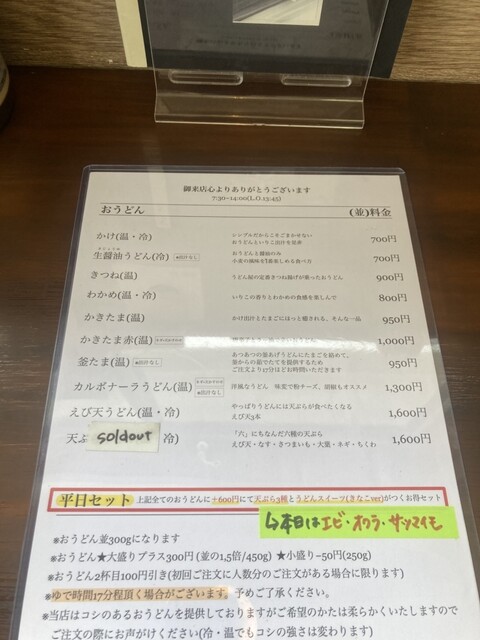 御来店心よりありがとうございます
7:30~14:00(L.O.13:45)
おうどん (並)料金
かけ(温・冷) シンプルだからこそごまかせない
おうどんといりこ出汁を是非 700円
生醤油うどん(冷) ※出汁なし おうどんと醤油のみ
小麦の風味を1番楽しめる食べ方 700円
きつね(温) うどん屋の定番きつね揚げが乗ったおうどん 900円
わかめ(温・冷) いりこの香りとわかめの食感を楽しんで 800円
かきたま(温) かけ出汁とたまごにほっと癒される、そんな一品 950円
かきたま赤(温) 1,000円
釜たま(温) ※出汁なし あつあつの釜あげうどんにたまごを絡めて。
釜からの茹でたてを提供するため
ご注文より17分ほどお時間いただきます 950円
カルボナーラうどん(温) ※出汁なし 洋風なうどん 味変で粉チーズ、胡椒もオススメ 1,300円
えび天うどん(温・冷) やっぱりうどんには天ぷらが食べたくなる
えび天3本 1,600円
天ぷ soldout 冷) 「六」にちなんだ六種の天ぷら
えび天・なす・さつまいも・大葉・ネギ・ちくわ 1,600円
平日セット 上記全てのおうどんに+600円にて天ぷら3種とうどんスイーツ(きなこver)がつくお得セット
↳本日はエビ・オクラ・サツマイモ
※おうどん並300gになります
※おうどん★大盛りプラス300円(並の1,5倍/450g) ★小盛り−50円(250g)
※おうどん2杯目100円引き(初回ご注文に人数分のご注文がある場合に限ります)
※ゆで時間17分程頂く場合がございます。予めご了承ください。
※当店はコシのあるおうどんを提供しておりますがご希望のかたは柔らかくいたしますので
ご注文の際にお声がけください(冷・温でもコシの強さは変わります)